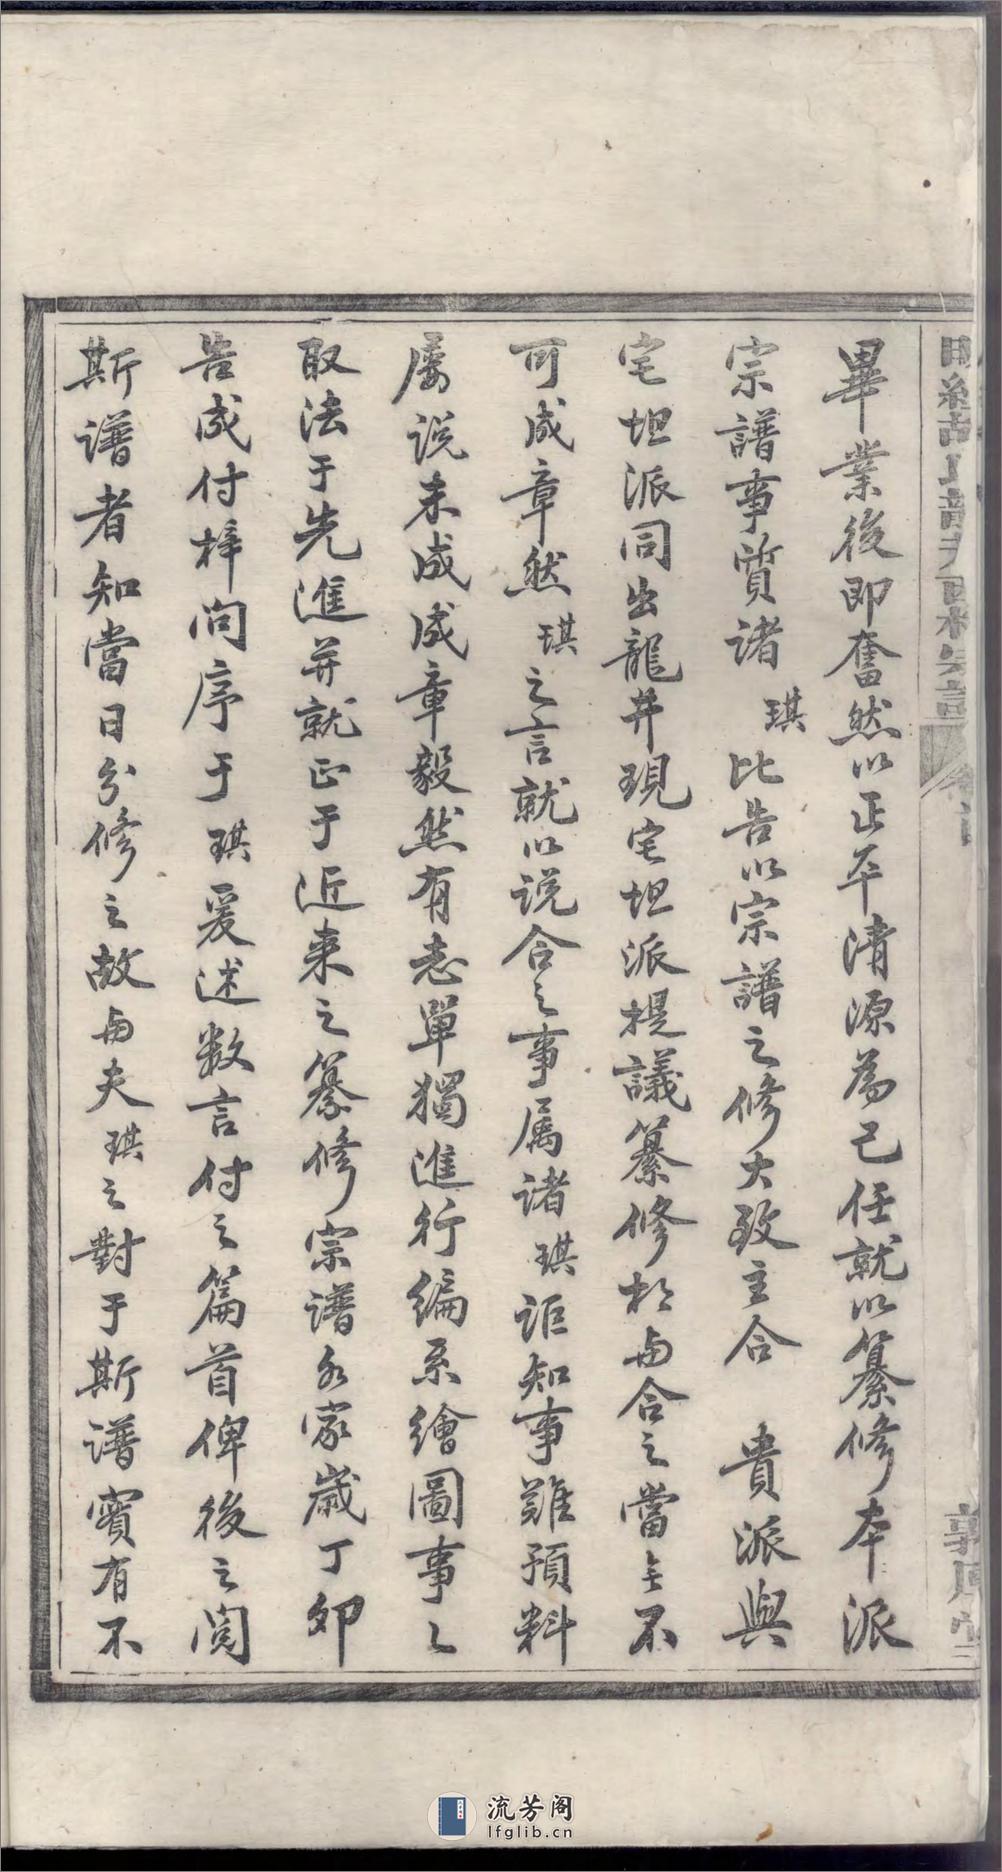 畢業後即奮然以正本清源為己任就以纂修本派
宗譜事質諸琪比告以宗譜之修大致主合 貴派與
宅坦派同出龍井現宅坦派提議纂修相与合之當無不
可成章然琪之言就以说合之事属诸琪詎知事難預料
屡说未成成章毅然有志單獨進行编系繪圖事々
取法于先進并就正于近来之纂修宗谱名家歲丁卯
告成付梓问序于琪爰述数言付之篇首俾後之阅
斯谱者知當日分修之故与夫琪之對于斯谱實有不
敦厚堂
流芳阁
lfglib.cn